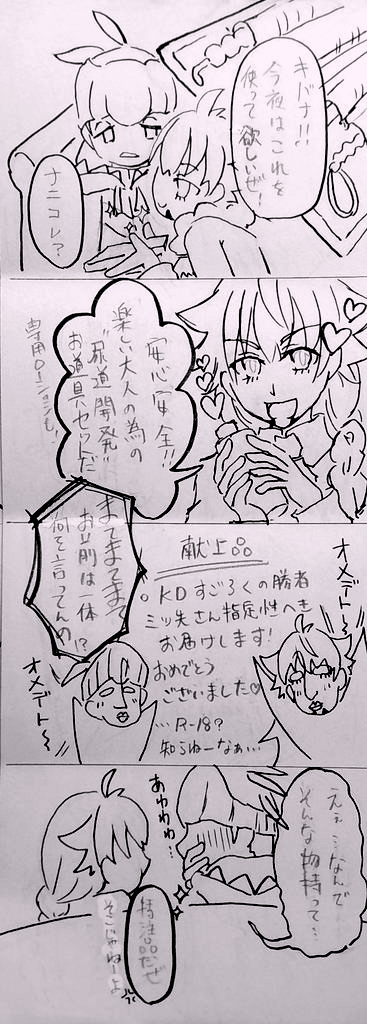 キバナ!!
今夜はこれを
使って欲しいぜ!
ナニコレ?
安心安全!!
楽しい大人の為の
"尿道開発"
お道具セットだ
専用ローションも!
まてまてまて
お前は一体
何を言ってんの!?
献上品
。KDすごろくの勝者
ミツ先さん指定性へき
お届けします!
おめでとう
ございました♡
…R-18?
知らねーなぁ…
オメデト〜
オメデト〜
ええ…なんで
そんな物持って…
あわわわ…
特注品だぜ
そこじゃねーよ